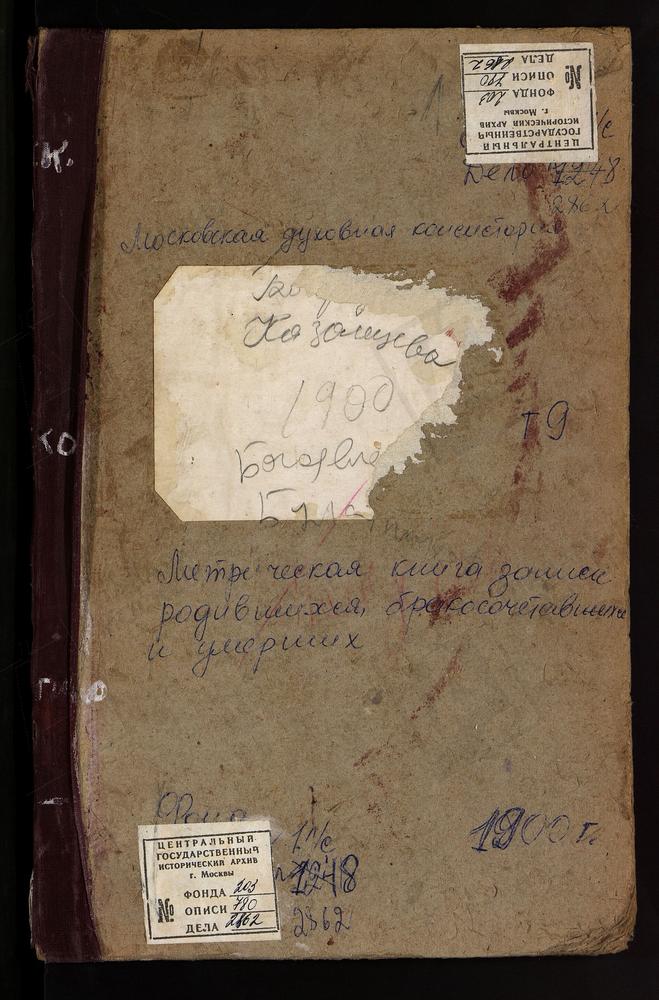 ЦЕНТРАЛЬНЫЙ
ГОСУДАРСТВЕННЫЙ
ИСТОРИЧЕСКИЙ АРХИВ
г. Москвы
ФОНДА 203
№ ОПИСИ 780
ДЕЛА 2862
Дело 1248
2862
Московская духовная консистория
Казанцева
1900
Т 9
Богоявле
Метрическая книга записи
родившихся, бракосочетавшихся
и умерших
Фонд
1900 г.
1248
2862
ЦЕНТРАЛЬНЫЙ
ГОСУДАРСТВЕННЫЙ
ИСТОРИЧЕСКИЙ АРХИВ
г. Москвы
ФОНДА 203
№ ОПИСИ 780
ДЕЛА 2862